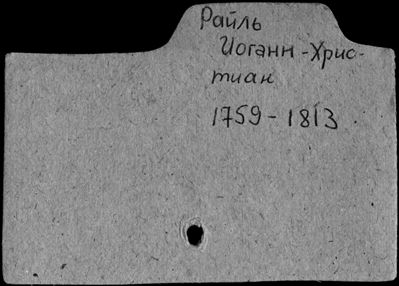 Райль
Иоганн-Хрис-
тиан
1759-1813